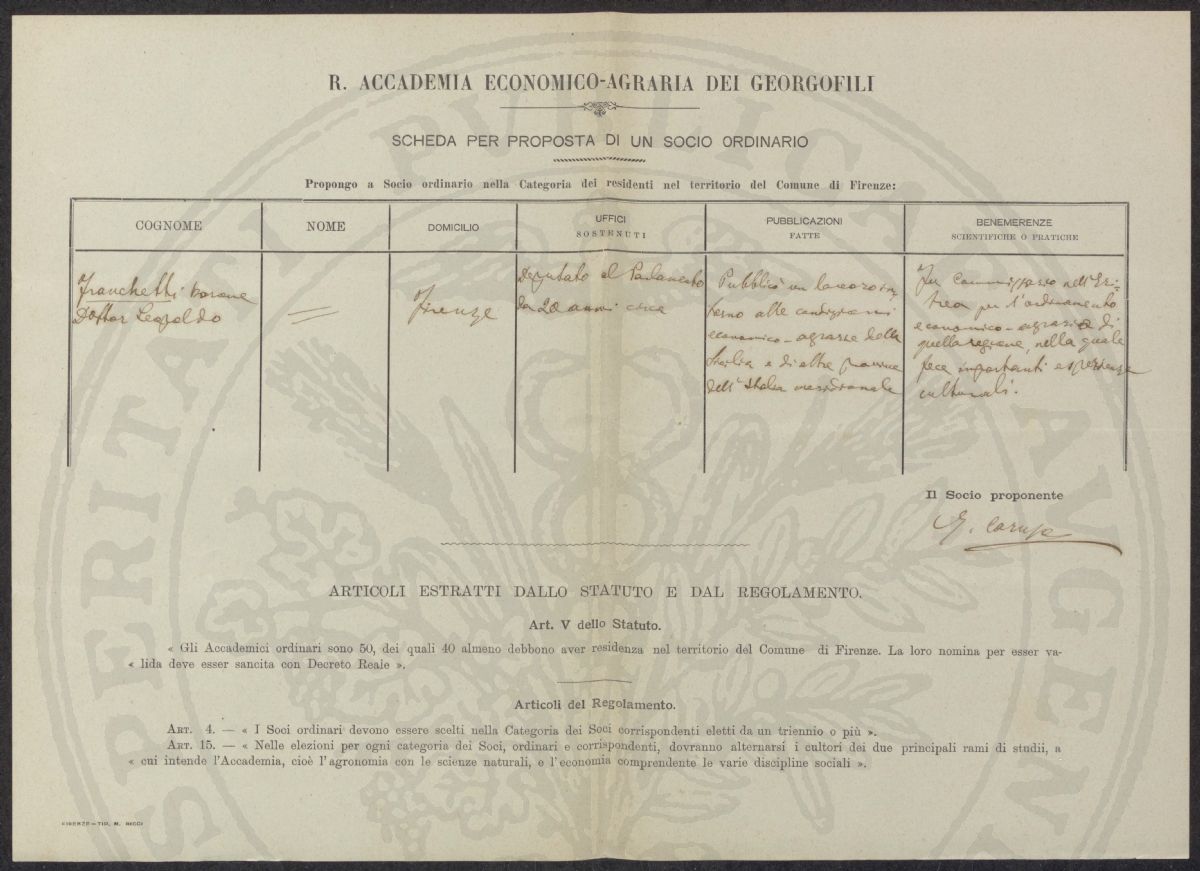 R. ACCADEMIA ECONOMICO-AGRARIA DEI GEORGOFILI
SCHEDA PER PROPOSTA DI UN SOCIO ORDINARIO
Propongo a Socio ordinario nella Categoria dei residenti nel territorio del Comune di Firenze:
COGNOME
NOME
DOMICILIO
UFFICI
SOSTENUTI
PUBBLICAZIONI
FATTE
BENEMERENZE
SCIENTIFICHE O PRATICHE
Franchetti barone
Dottor Leopoldo
Firenze
Deputato al Parlamento
da 20 anni circa
Pubblicò un lavoro in-
torno alle condizioni
economico-agrarie della
Sicilia e di altre provincie
dell'Italia meridionale
Fu Commissario nell'Eri-
trea per l'ordinamento
economico-agrario di
quella regione, nella quale
fece importanti esperienze
culturali.
Il Socio proponente
G. Caruso
ARTICOLI ESTRATTI DALLO STATUTO E DAL REGOLAMENTO.
Art. V dello Statuto.
« Gli Accademici ordinari sono 50, dei quali 40 almeno debbono aver residenza nel territorio del Comune di Firenze. La loro nomina per esser va-
« lida deve esser sancita con Decreto Reale ».
Articoli del Regolamento.
ART. 4. — « I Soci ordinari devono essere scelti nella Categoria dei Soci corrispondenti eletti da un triennio o più ».
ART. 15. — « Nelle elezioni per ogni categoria dei Soci, ordinari e corrispondenti, dovranno alternarsi i cultori dei due principali rami di studii, a
« cui intende l'Accademia, cioè l'agronomia con le scienze naturali, e l'economia comprendente le varie discipline sociali ».
FIRENZE—TIP. M. RICCI